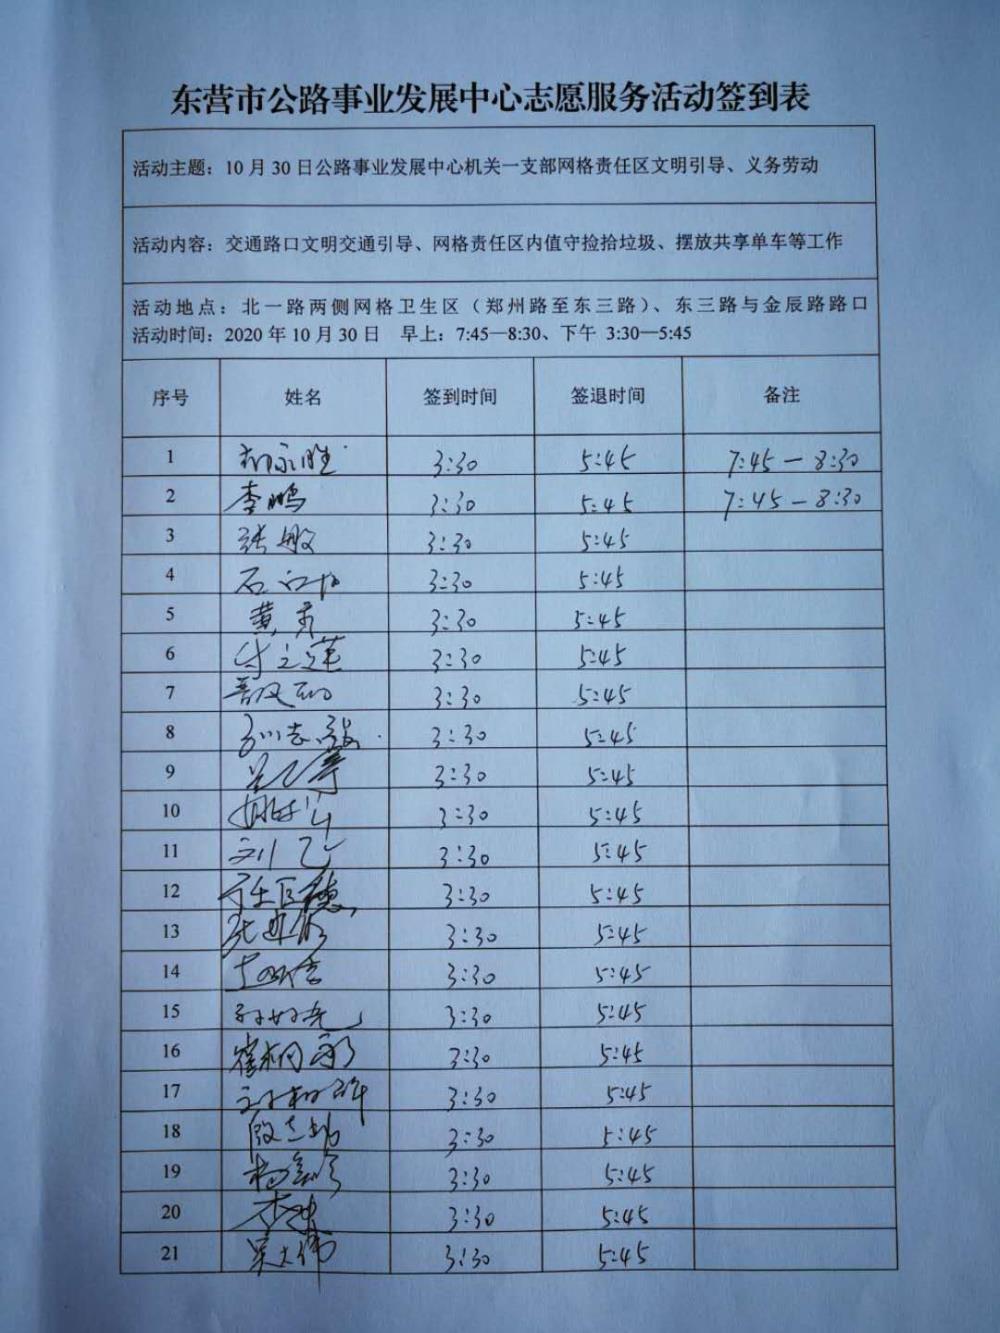 东营市公路事业发展中心志愿服务活动签到表
活动主题：10月30日公路事业发展中心机关一支部网格责任区文明引导、义务劳动
活动内容：交通路口文明交通引导、网格责任区内值守捡拾垃圾、摆放共享单车等工作
活动地点：北一路两侧网格卫生区（郑州路至东三路）、东三路与金辰路路口
活动时间：2020年10月30日 早上：7:45—8:30、下午 3:30—5:45
序号 姓名 签到时间 签退时间 备注
1 3:30 5:45 7:45－8:30
2 李鹏 3:30 5:45 7:45－8:30
3 张敏 3:30 5:45
4 3:30 5:45
5 3:30 5:45
6 3:30 5:45
7 3:30 5:45
8 3:30 5:45
9 3:30 5:45
10 3:30 5:45
11 3:30 5:45
12 3:30 5:45
13 3:30 5:45
14 3:30 5:45
15 3:30 5:45
16 3:30 5:45
17 3:30 5:45
18 3:30 5:45
19 3:30 5:45
20 3:30 5:45
21 吴大伟 3:30 5:45